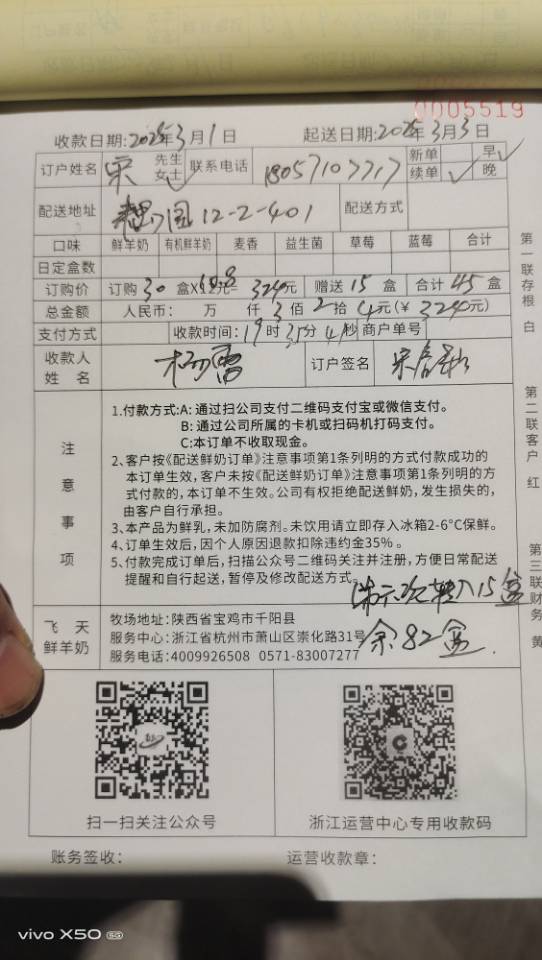 0005519
收款日期:2025年3月1日 起送日期:2025年3月3日
订户姓名 宋 先生 女士✓ 联系电话 18057107717 新单 早✓
续单 ✓ 晚
配送地址 12-2-401 配送方式
口味 鲜羊奶 有机鲜羊奶 麦香 益生菌 草莓 蓝莓 合计
日定盒数
订购价 订购 30 盒X10.8元= 324元 赠送 15 盒 合计 45 盒
总金额 人民币: 万 仟 3 佰 2 拾 4元(¥ 324元)
支付方式 收款时间: 19 时 31分 41秒 商户单号
收款人姓名 杨雷 订户签名 宋
注意事项
1.付款方式:A: 通过扫公司支付二维码支付宝或微信支付。
B: 通过公司所属的卡机或扫码机打码支付。
C:本订单不收取现金。
2、客户按《配送鲜奶订单》注意事项第1条列明的方式付款成功的
本订单生效,客户未按《配送鲜奶订单》注意事项第1条列明的方
式付款的,本订单不生效。公司有权拒绝配送鲜奶,发生损失的,
由客户自行承担。
3、本产品为鲜乳,未加防腐剂。未饮用请立即存入冰箱2-6°C保鲜。
4、订单生效后,因个人原因退款扣除违约金35%。
5、付款完成订单后,扫描公众号二维码关注并注册,方便日常配送
提醒和自行起送,暂停及修改配送方式。
转入15盒
余82盒
飞天鲜羊奶
牧场地址:陕西省宝鸡市千阳县
服务中心:浙江省杭州市萧山区崇化路31号
服务电话:4009926508 0571-83007277
扫一扫关注公众号 浙江运营中心专用收款码
账务签收: 运营收款章:
第一联存根 白
第二联客户 红
第三联财务 黄
vivo X50 5G